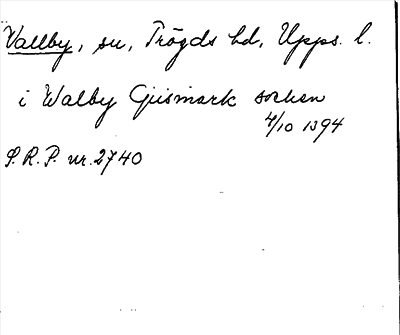 Vallby, sn, Trögds hd, Upps. l.
i Walby Giismark sochen
4/10 1394
S.R.P. nr. 2740